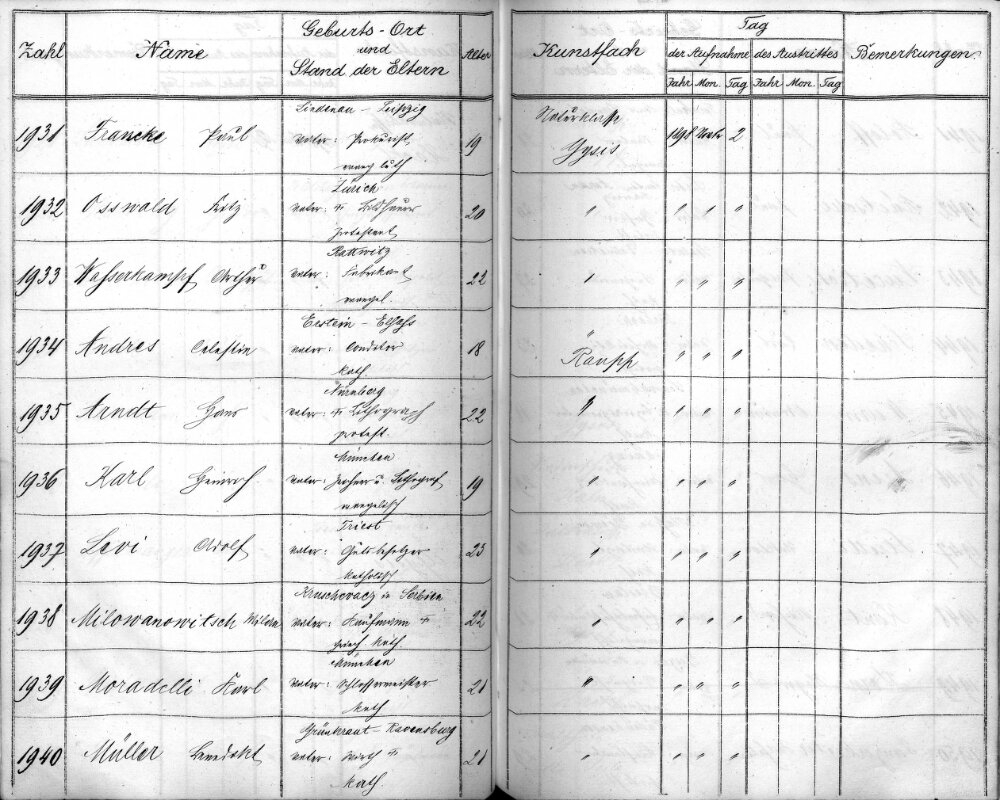 Zahl Name Geburts-Ort und Stand der Eltern Alter Kunstfach Tag der Aufnahme des Austrittes Bemerkungen
Jahr Mon. Tag Jahr Mon. Tag
Lindenau - Leipzig
1931 Francke Paul Vater: Prokurist 19 Naturklasse Gysis 1898 2
evang luth
Zürich
1932 Osswald Fritz Vater: † Bildhauer 20 " " " "
protestant
Rattwitz
1933 Wasserkampf Arthur Vater: Fabrikant 22 " " " "
evangel.
Erstein - Elsass
1934 Andres Celestin Vater: Conditor 18 " Raupp " " "
kath.
Nürnberg
1935 Arndt Hans Vater: † Lithograph 22 " " " "
protest.
München
1936 Karl Heinrich Vater: Lithograf 19 " " " "
evangelisch
Triest
1937 Levi Adolf Vater: Gutsbesitzer 23 " " " "
katholisch
Kruschevacz in Serbien
1938 Milowanowitsch Milan Vater: Kaufmann † 22 " " " "
griech kath
München
1939 Moradelli Karl Vater: Schlossermeister 21 " " " "
kath
Grünkraut - Ravensburg
1940 Müller Benedikt Vater: Wirth † 21 " " " "
Kath.